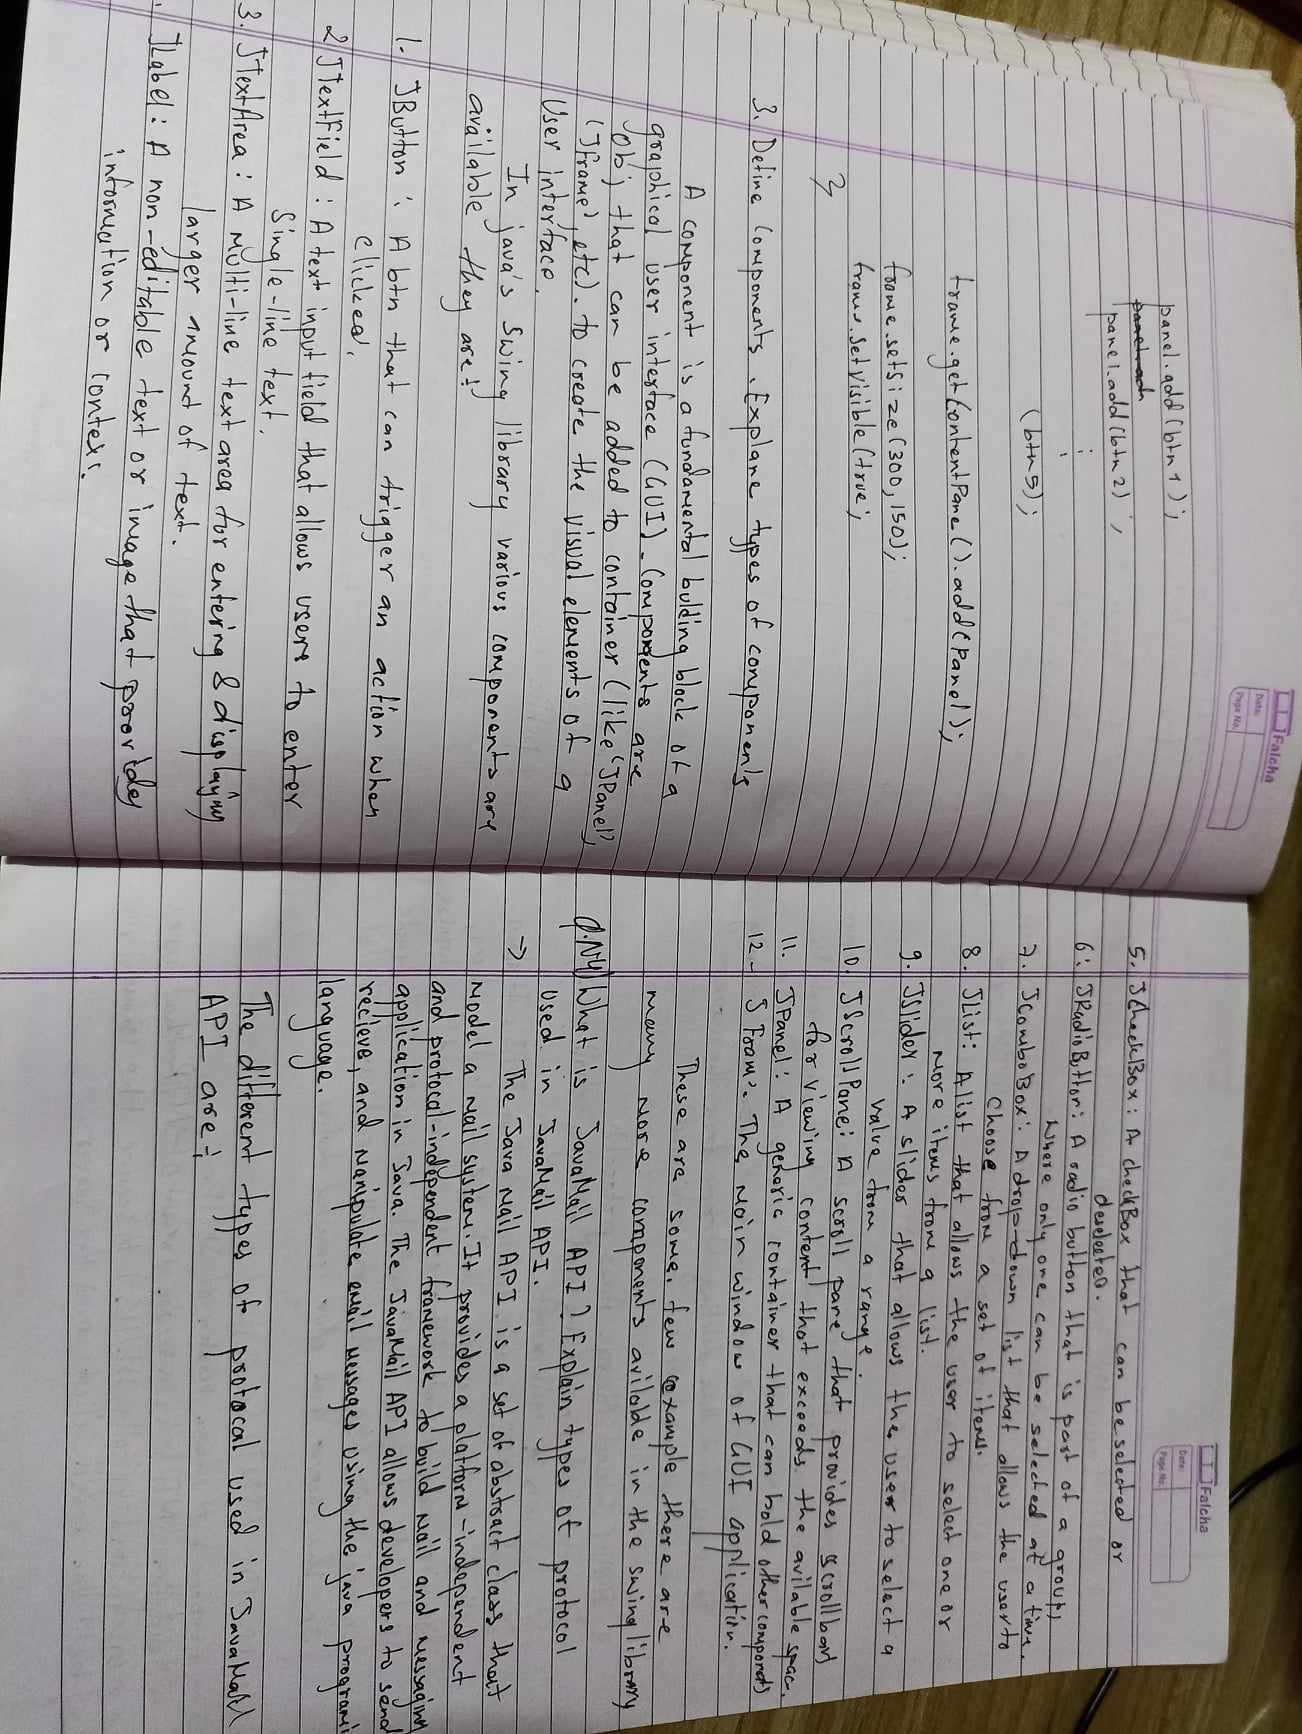 Falcha
Date:
Page No.
panel.add(btn1);
panel.add(btn2);
:
(btn5);
frame.getContentPane().add(panel);
frame.setSize(300,150);
frame.setVisible(true;
}
3. Define components. Explane types of components
A component is a fundamental bulding block of a
graphical user interface (GUI). Components are
Obj that can be added to container (like 'JPanel',
'JFrame', etc). to create the visual elements of a
User interface.
In java's Swing library various components are
available they are:-
1. JButton : A btn that can trigger an action when
clicked.
2 JTextField : A text input field that allows users to enter
Single-line text.
3. JTextArea : A Multi-line text area for entering & displaying
larger amount of text.
. JLabel : A non-editable text or image that provides
information or context.
Falcha
Date:
Page No.
5. JCheckBox : A checkBox that can be selected or
deselected.
6. JRadioButton : A radio button that is part of a group,
where only one can be selected at a time.
7. JComboBox : A drop-down list that allows the user to
Choose from a set of items.
8. JList : A list that allows the user to select one or
More items from a list.
9. JSlider : A slider that allows the user to select a
value from a range.
10. JScrollPane : A scroll pane that provides scrollbars
for viewing content that exceeds the avilable spac.
11. JPanel : A generic container that can hold other components
12.- JFrame. The main window of GUI application.
These are some few example there are
many More components avilable in the swing library
Q.N4) What is JavaMail API? Explain types of protocol
used in JavaMail API.
→ The Java Mail API is a set of abstract class that
Model a Mail system. It provides a platform-independent
and protocal-independent framework to build Mail and messaging
application in Java. The JavaMail API allows developers to send
recieve, and Manipulate email Messages using the java programi
language.
The different types of protocal used in JavaMail
API are :-